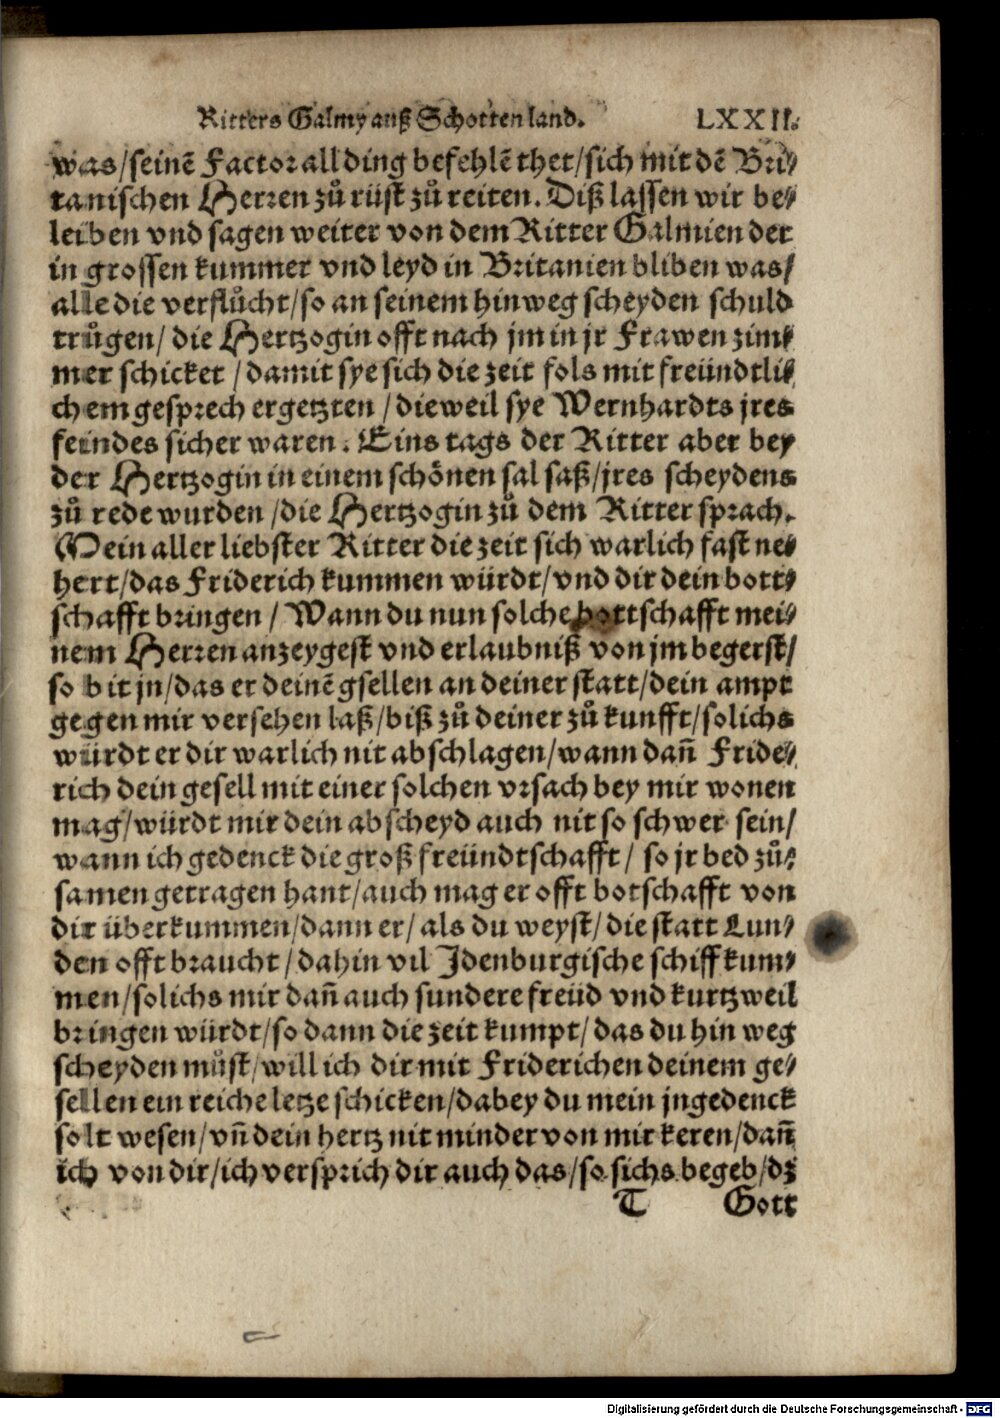 Ritters Galmy auß Schotten land. LXXII.
was/seinē Factor all ding befehlē thet/sich mit dē Bri⸗
tanischen Herren zů rüst zů reiten. Diß lassen wir be⸗
leiben vnd sagen weiter von dem Ritter Galmien der
in grossen kummer vnd leyd in Britanien bliben was/
alle die verflůcht/so an seinem hinweg scheyden schuld
trůgen/ die Hertzogin offt nach jm in jr Frawen zim⸗
mer schicket / damit sye sich die zeit fols mit freündtli⸗
chem gesprech ergetzten / dieweil sye Wernhardts jres
feindes sicher waren. Eins tags der Ritter aber bey
der Hertzogin in einem schönen sal saß/jres scheydens
zů rede wurden /die Hertzogin zů dem Ritter sprach.
Mein aller liebster Ritter die zeit sich warlich fast ne⸗
hert/das Friderich kummen würdt/vnd dir dein bott⸗
schafft bringen / Wann du nun solche bottschafft mei⸗
nem Herren anzeygest vnd erlaubniß von jm begerst/
so bit jn/das er deinē gsellen an deiner statt/dein ampt
gegen mir versehen laß/biß zů deiner zů kunfft/solichs
würdt er dir warlich nit abschlagen/wann dañ Fride⸗
rich dein gesell mit einer solchen vrsach bey mir wonen
mag/würdt mir dein abscheyd auch nit so schwer sein/
wann ich gedenck die groß freündtschafft / so jr bed zů⸗
samen getragen hant/auch mag er offt botschafft von
dir überkummen/dann er/ als du weyst/die statt Lun⸗
den offt braucht / dahin vil Jdenburgische schiff kum⸗
men/solichs mir dañ auch sundere freüd vnd kurtzweil
bringen würdt/so dann die zeit kumpt/das du hin weg
scheyden můst/will ich dir mit Friderichen deinem ge⸗
sellen ein reiche letze schicken/dabey du mein jngedenck
solt wesen/vñ dein hertz nit minder von mir keren/dañ
ich von dir/ich versprich dir auch das/so sichs begeb/dz
T Gott
Digitalisierung gefördert durch die Deutsche Forschungsgemeinschaft - DFG